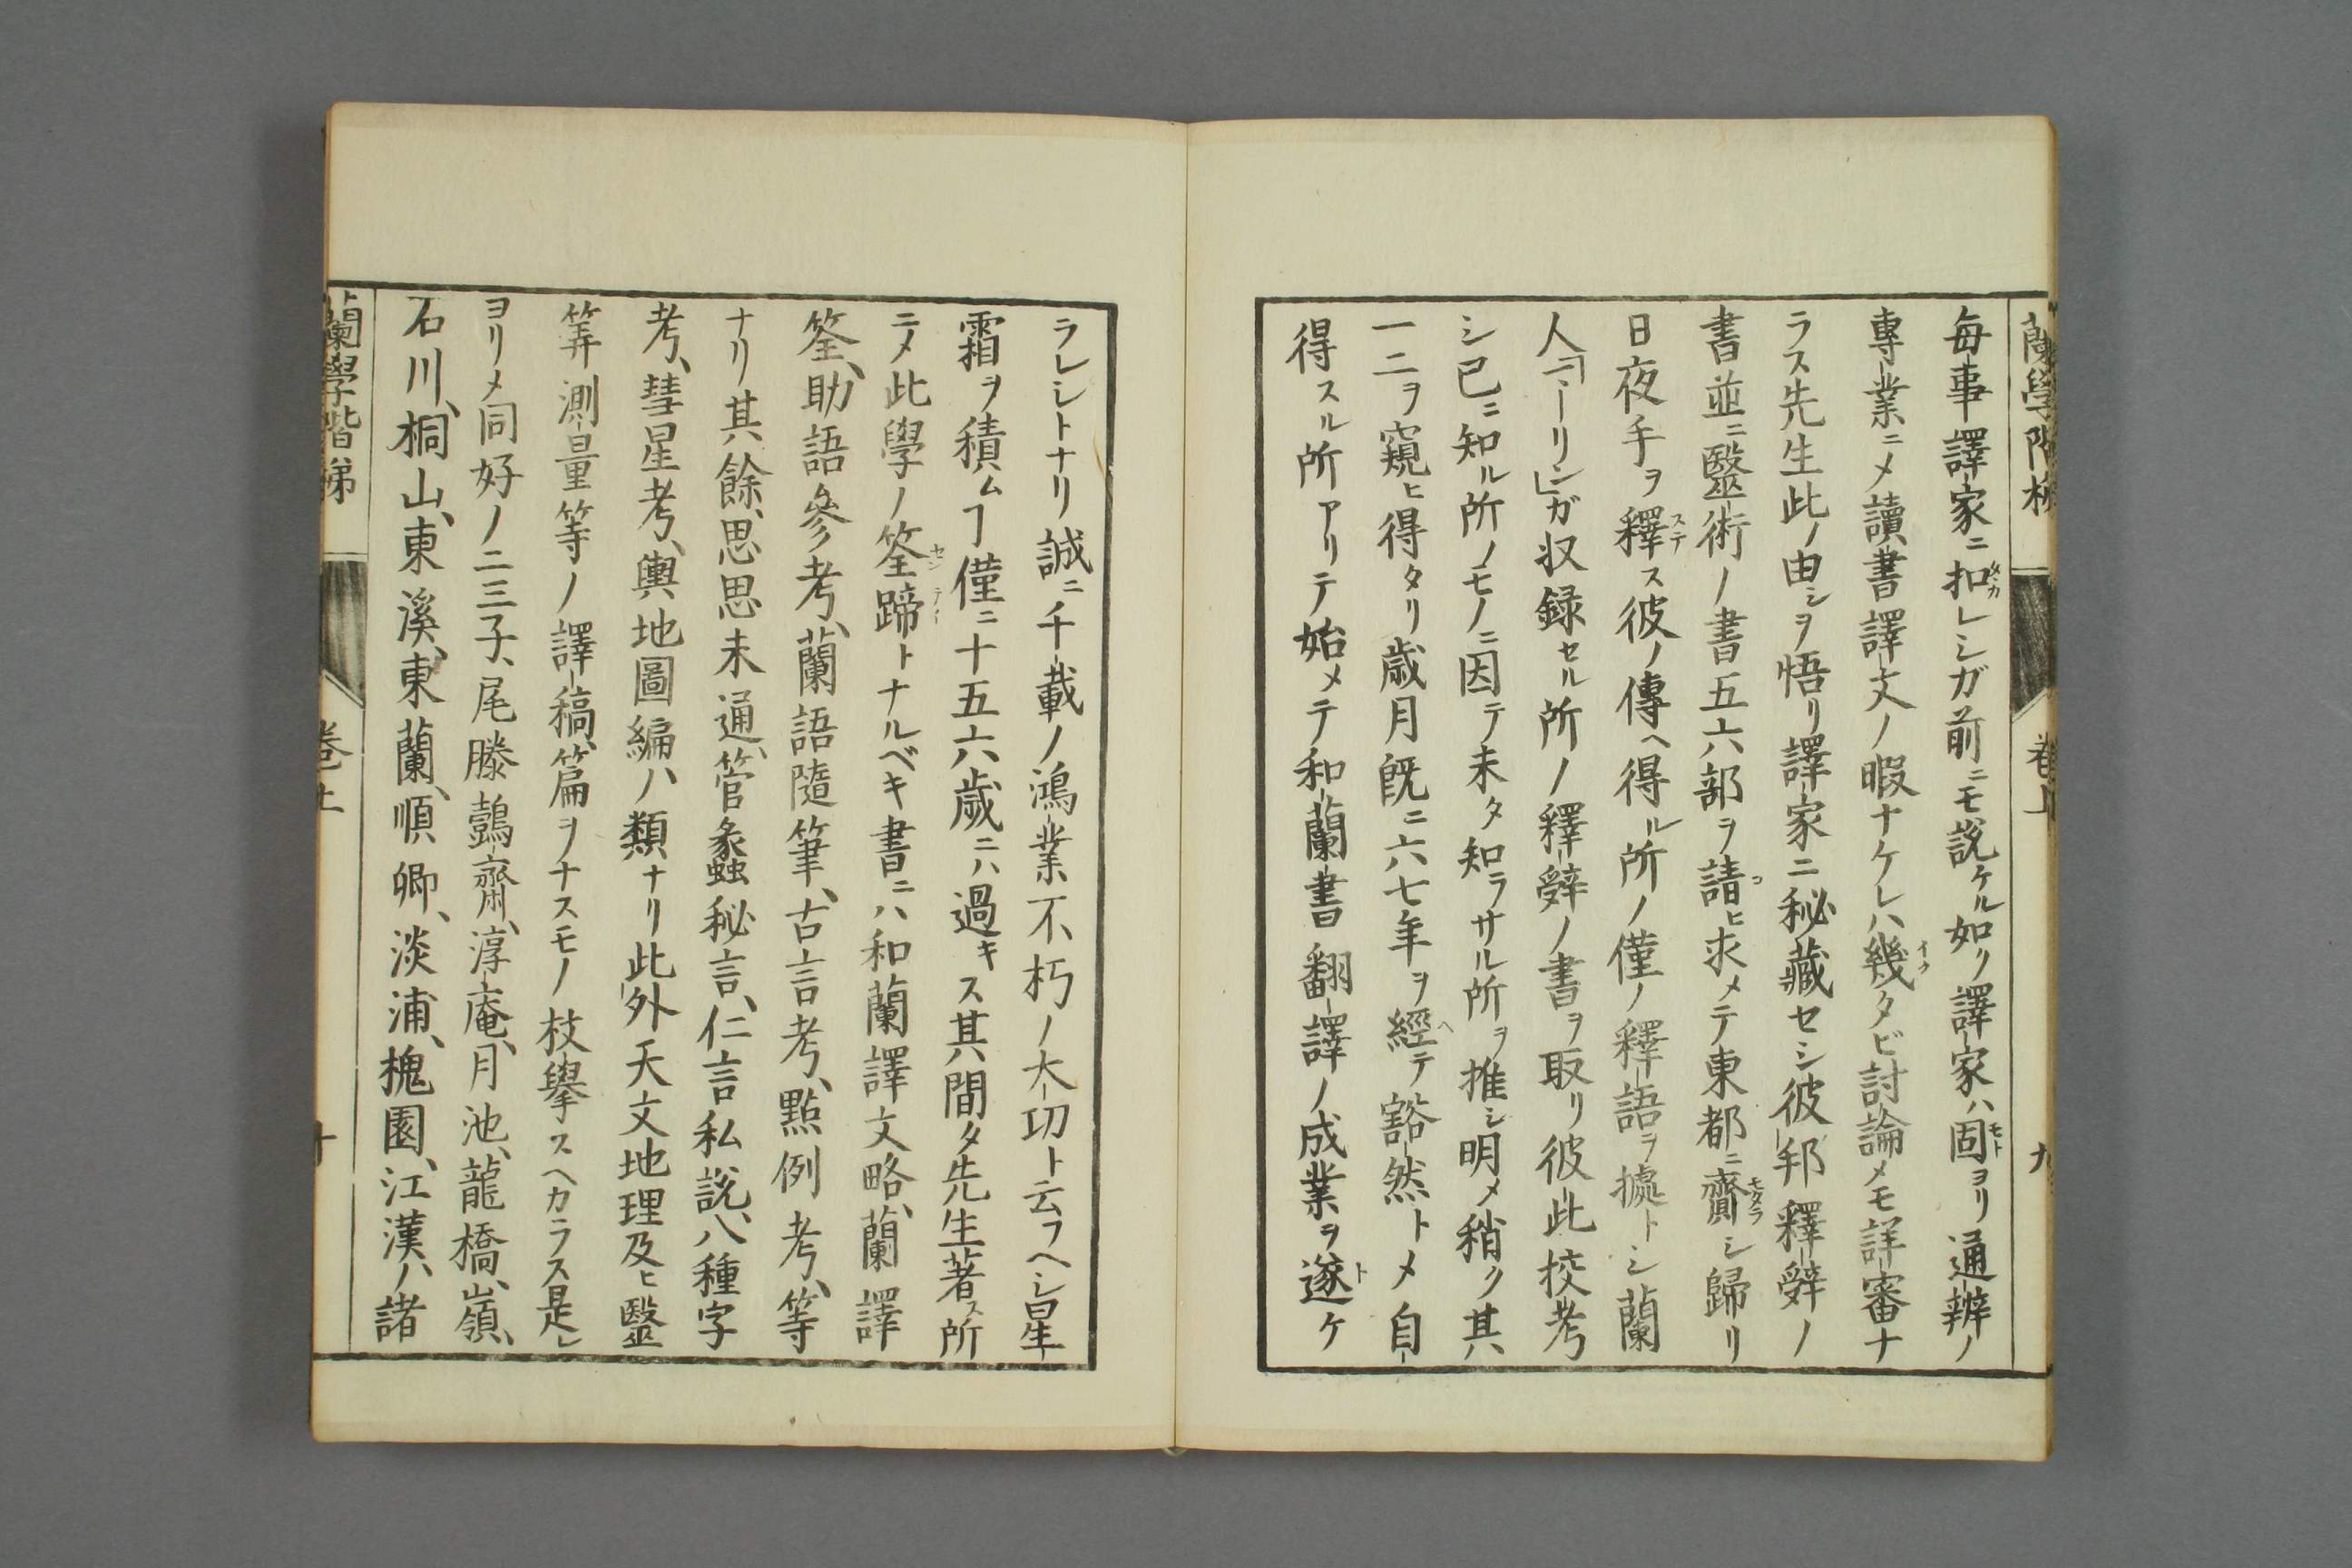 蘭學階梯 卷上 九
每事譯家ニ扣レシガ前ニモ說ケル如ノ譯家ハ固ヨリ通辨ノ
專業ニメ讀書譯文ノ暇ナケレハ幾タビ討論メモ詳審ナ
ラス先生此ノ由シヲ悟リ譯家ニ秘藏セシ彼邦釋辭ノ
書並ニ醫術ノ書五六部ヲ請ヒ求メテ東都ニ齎シ歸リ
日夜手ヲ釋ス彼ノ傳ヘ得ル所ノ僅ノ釋語ヲ據トシ蘭
人「マーリン」ガ収録セル所ノ釋辭ノ書ヲ取リ彼此挍考
シ已ニ知ル所ノモノニ因テ未タ知ラサル所ヲ推シ明メ稍ク其
一二ヲ窺ヒ得タリ歲月旣ニ六七年ヲ經テ豁然トメ自
得スル所アリテ始メテ和蘭書翻譯ノ成業ヲ遂ケ
ラレシトナリ誠ニ千載ノ鴻業不朽ノ大切ト云フヘシ星
霜ヲ積ムヿ僅ニ十五六歲ニハ過キス其間タ先生著ス所
ニメ此學ノ筌蹄トナルベキ書ニハ和蘭譯文略、蘭譯
筌、助語參考、蘭語隨筆、古言考、點例考、等
ナリ其餘、思思未通、管蠡秘言、仁言私說、八種字
考、彗星考、輿地圖編ハ類ナリ此外天文地理及ヒ醫
筭測量等ノ譯稿、篇ヲナスモノ枝擧スヘカラス是レ
ヨリメ同好ノ二三子、尾滕鷧齋、淳庵、月池、龍橋、嶺、
石川、桐山、東溪、東蘭、順卿、淡浦、槐園、江漢ハ諸
蘭學階梯 卷上 十